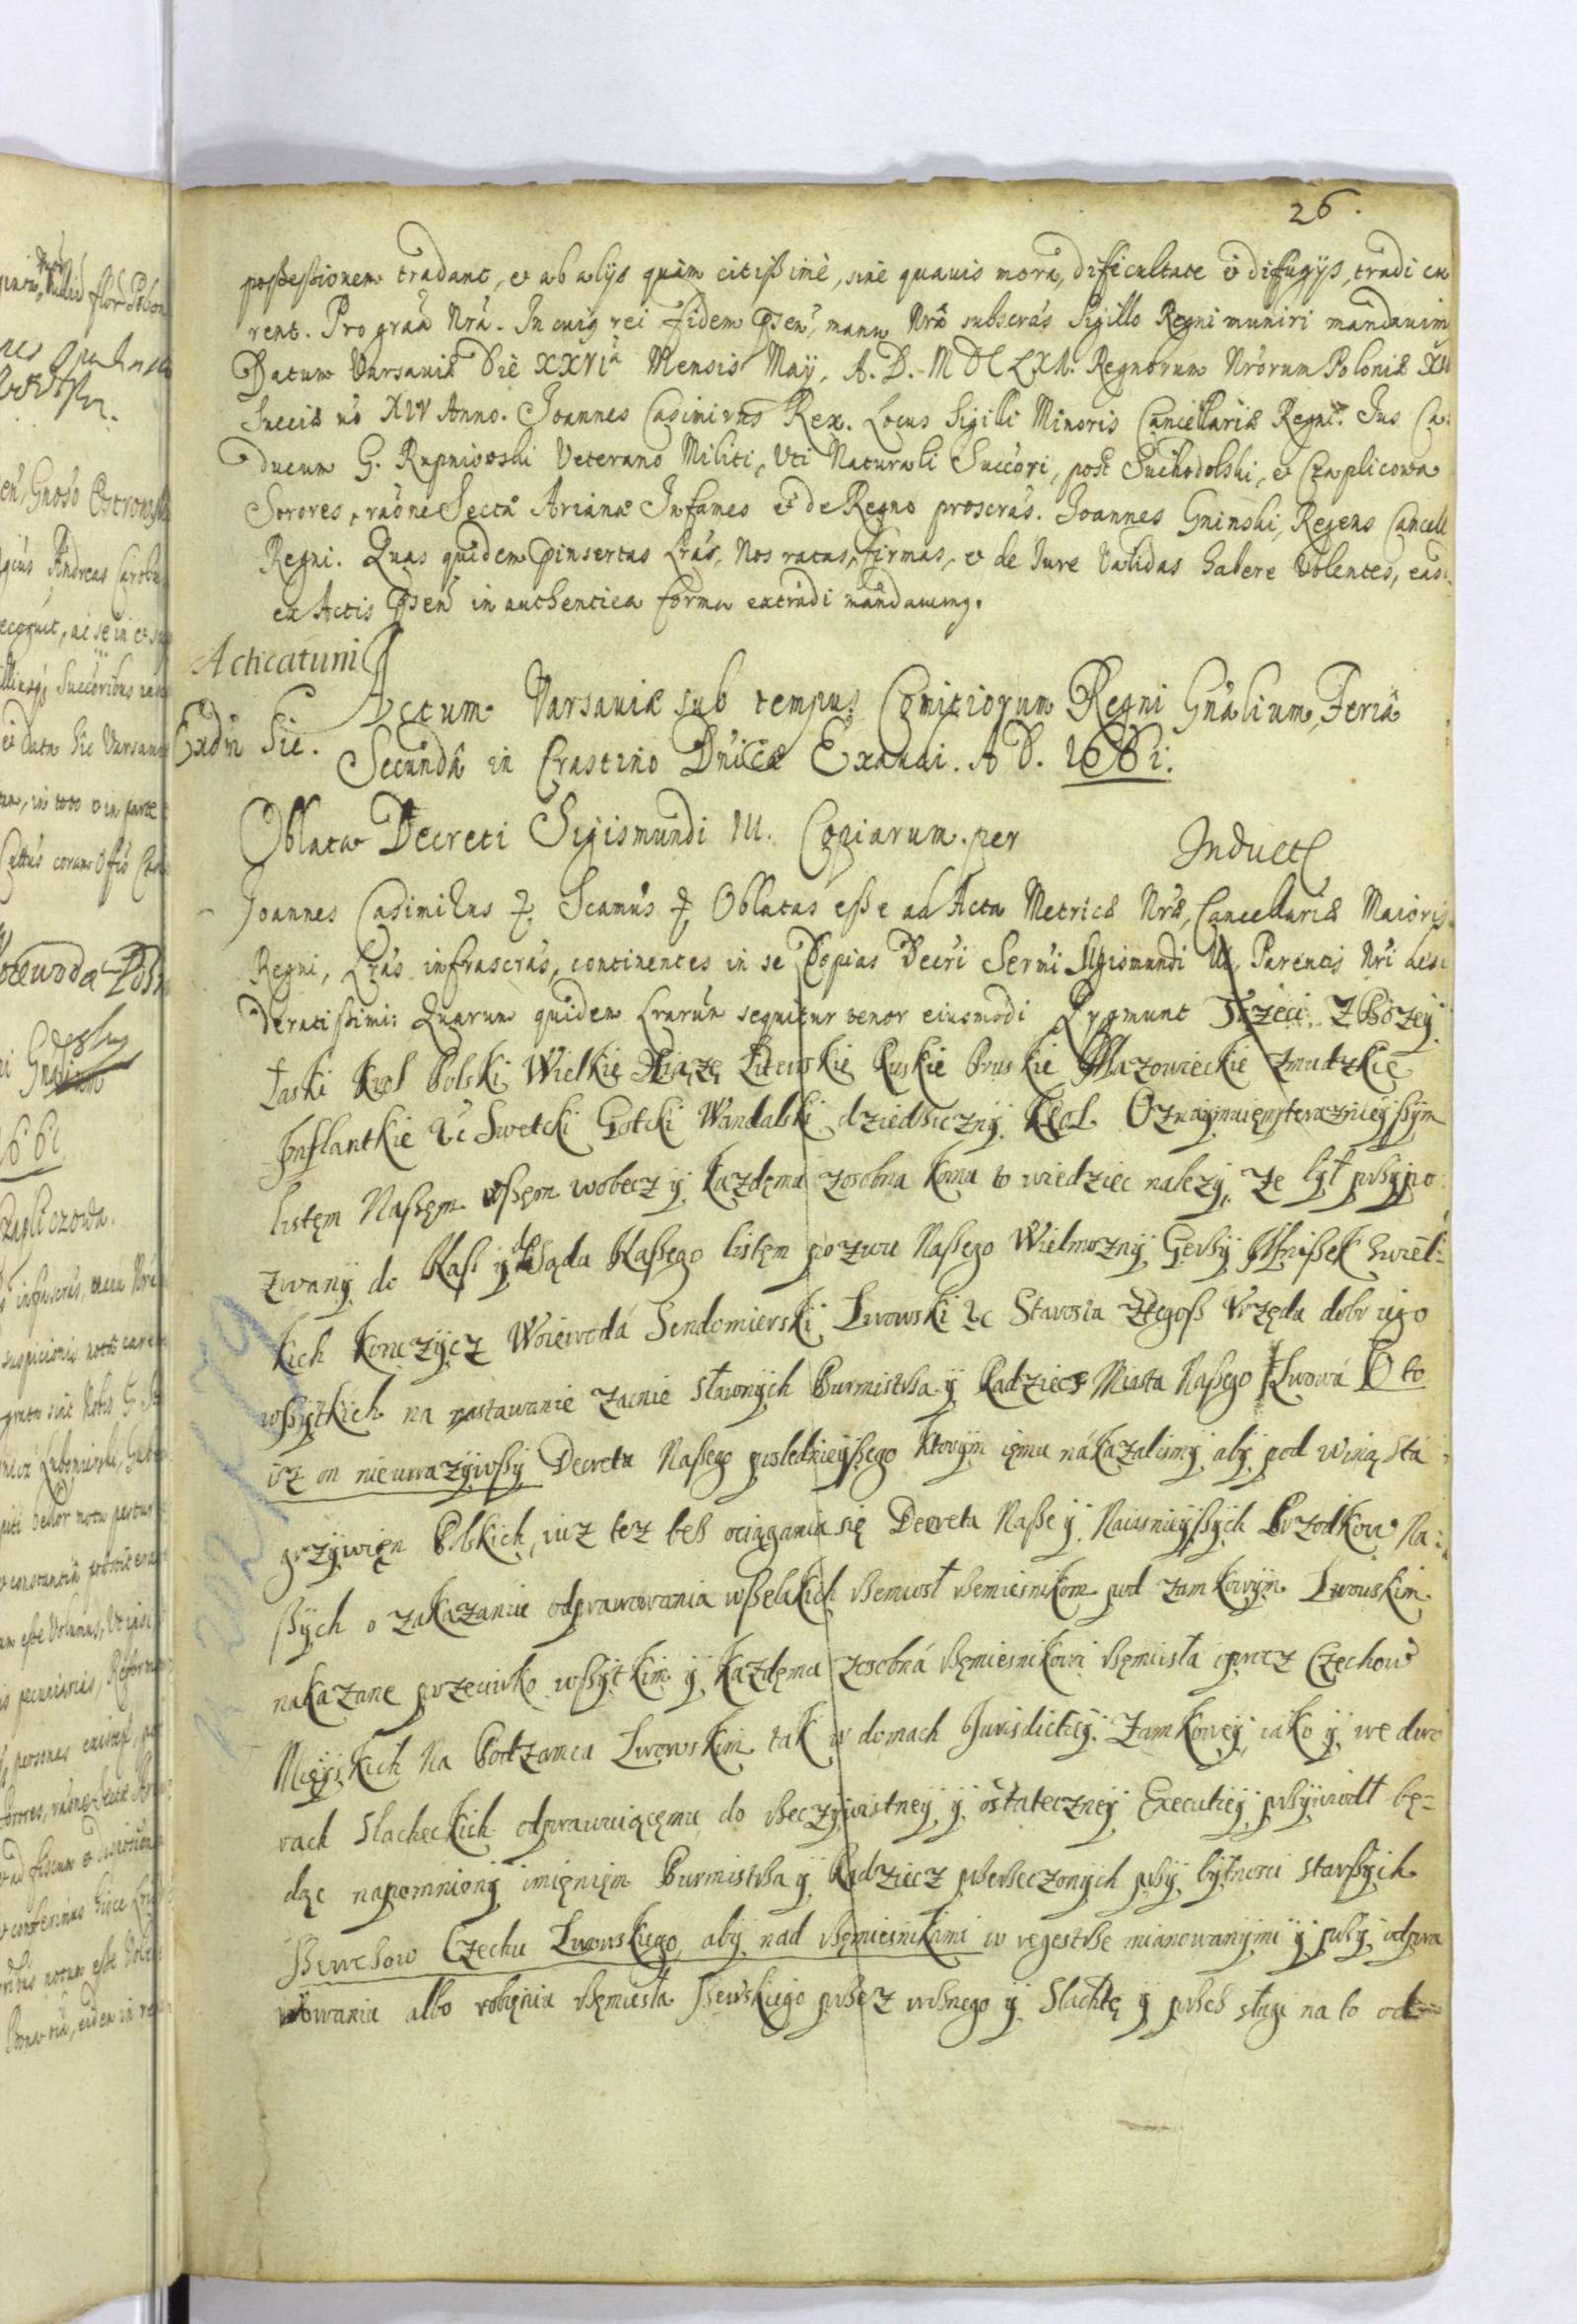 26.
possessionem tradant, et ab alijs quàm citissimè, sine quavis mora, difficultate et diffugijs, tradi cu
rent. Pro graa Nra. In cuig rei fidem pnsen, manu Nra subscras Sigillo Regni muniri mandavim
Datum Varsaviæ Die XXVIa Mensis Maij, A. D. MDCLXI. Regnorum Nrorum Poloniæ XII
Sueciæ vo XIV Anno. Joannes Casimirus Rex. Locus Sigilli Minoris Cancellariæ Regni. Jus Ca:
ducum G. Rupniowski Veterano Militi, Uti Naturali Succori, post Suchodolski, et Czaplicowa
Sorores, raone Sectæ Arianæ Infames et de Regno proscras. Joannes Gninski, Regens Cancell
Regni. Quas quidem pinsertas Lras, Nos ratas, firmas, et de Jure Validas habere Volentes, eas
ex Actis pnsen in authentica forma extradi mandavimg.
Acticatum
Actum Varsaviæ sub tempus Comitiorum Regni Gnalium, Feriâ
Extdn Sie. Secundâ in Crastino Dnicæ Exaudi. A D. 1661.
Oblata Decreti Sigismundi III. Copiarum per Induct
Joannes Casimirus &. Scamus &. Oblatas esse ad Acta Metricæ Nræ, Cancellariæ Maioris
Regni, Lras infrascras, continentes in se Copias Decri Sermi Sigismundi III, Parentis Nri desi
deratissimi: Quarum quidem Lrarum sequitur tenor eiusmodi Zygmunt Trzeci Z Bozey
Łaski Krol Polski Wielkie Xiążę Litewskie Ruskie Pruskie Mazowieckie Zmudzkie
Inflantkie &c Swetcki Gotcki Wandalski dziedziczny Krol. Oznaymuięm terazniejszym
listęm Naszęm wszęm wobecz y kazdęmu zosobna komu to wiedziec nalezy, Ze był przypo:
zwany do Nas y do Sądu Naszego listęm pozwu Naszego Wielmozny Gerzy Mniszek zwiel:
kich Konczycz Woiewoda Sendomierski Lwowski &c Starosta Ztegosz Vrzędu dobr iego
wszytkich na nastawanie zacnie sławnych Burmistrza y Radziecz Miasta Naszego Lwowa O to
iz on nieuwazywszy Decretu Naszego poslednieyszego ktorym iemu nakazalismy aby pod winą sta
grzywięn Polskich, iuz tez bes ociągania się Decreta Nasze y Naiasnieyszych Przodkow Na:
szych o zakazaniu odprawowania wszelakich rzemiosł rzemiesnikom pod zamkowym Lwowskim
nakazane przeciwko wszytkim y kazdęmu zosobna rzęmiesnikowi rzęmiesła oprocz Czechow
Mieyskich Na Podzamcu Lwowskim tak w domach Jurisdictiey Zamkowey, iako y we dwo
rach Slacheckich odprawuiącęmu do rzeczywistney y ostateczney Executiey przywiodł bę=
dąc napomniony imięniem Burmistrza y Radziecz przerzeczonych przy bytnosci starszych
Szewcow Czechu Lwowskiego, aby nad rzęmiesnikami w regestrze mianowanymi y przy odpra
wowaniu albo robięniu rzęmiesła szewskiego przez woznego y Slachtę y przes sługi na to od=